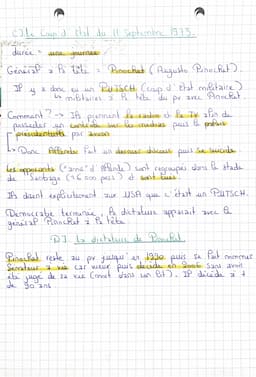 C) Le Coup d'état du 11 Septembre 1973
durée = une journée
Général à la tête = Pinochet (Augusto Pinochet)
Il y a donc eu un PUTSCH (coup d'état militaire)
↳ militaires à la tête du pv avec Pinochet.
Comment? → Ils prennent la radio et la TV afin de
posséder un contrôle sur les médias puis le palais
présidentiel par avion
↳ Donc Allende fait un dernier discours puis se suicide
Les opposants ("amis" d'Allende) sont regroupés dans le stade
de Santiago (≈ 6 000 pers) et sont tués
Ils disent explicitement aux USA que c'était un PUTSCH.
Démocratie terminée, la dictature apparait avec le
général Pinochet à la tête.
D) La dictature de Pinochet
Pinochet reste au pv jusqu'en 1990 puis se fait nommer
Sénateur à vie car vieux puis décède en 2006 sans avoir
été jugé de sa vie (mort dans son lit). Il décède à +
de 90 ans.